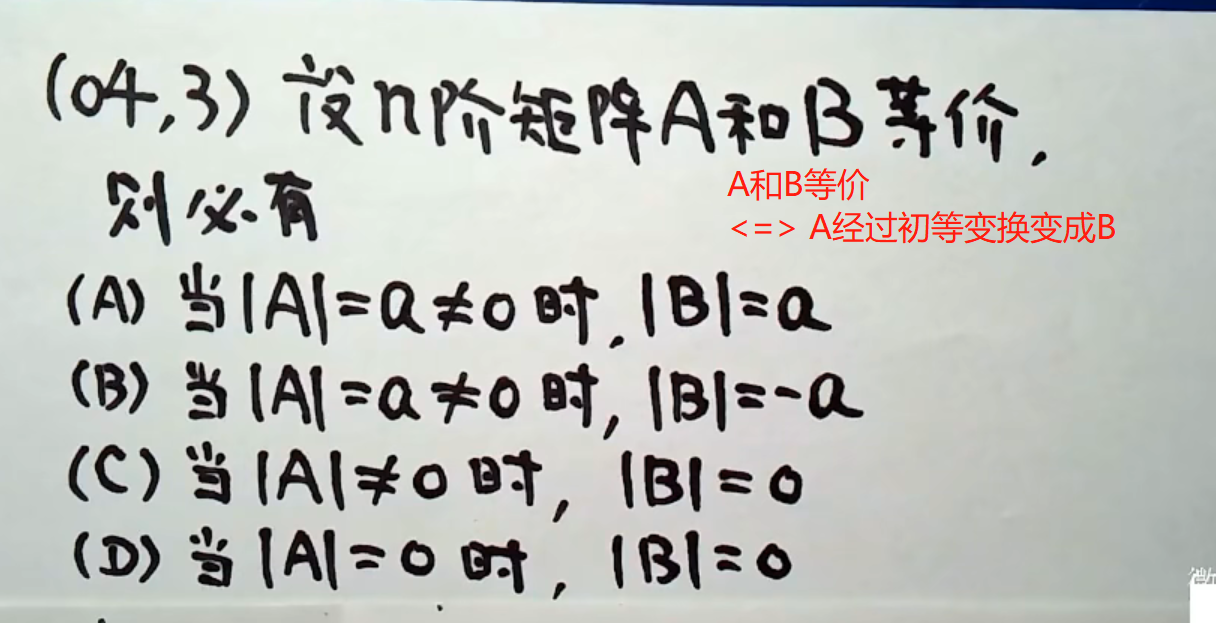 (04,3) 设n阶矩阵A和B等价,
则必有
A和B等价
<=> A经过初等变换变成B
(A) 当|A|=a≠0时,|B|=a
(B) 当|A|=a≠0时,|B|=-a
(C) 当|A|≠0时,|B|=0
(D) 当|A|=0时,|B|=0